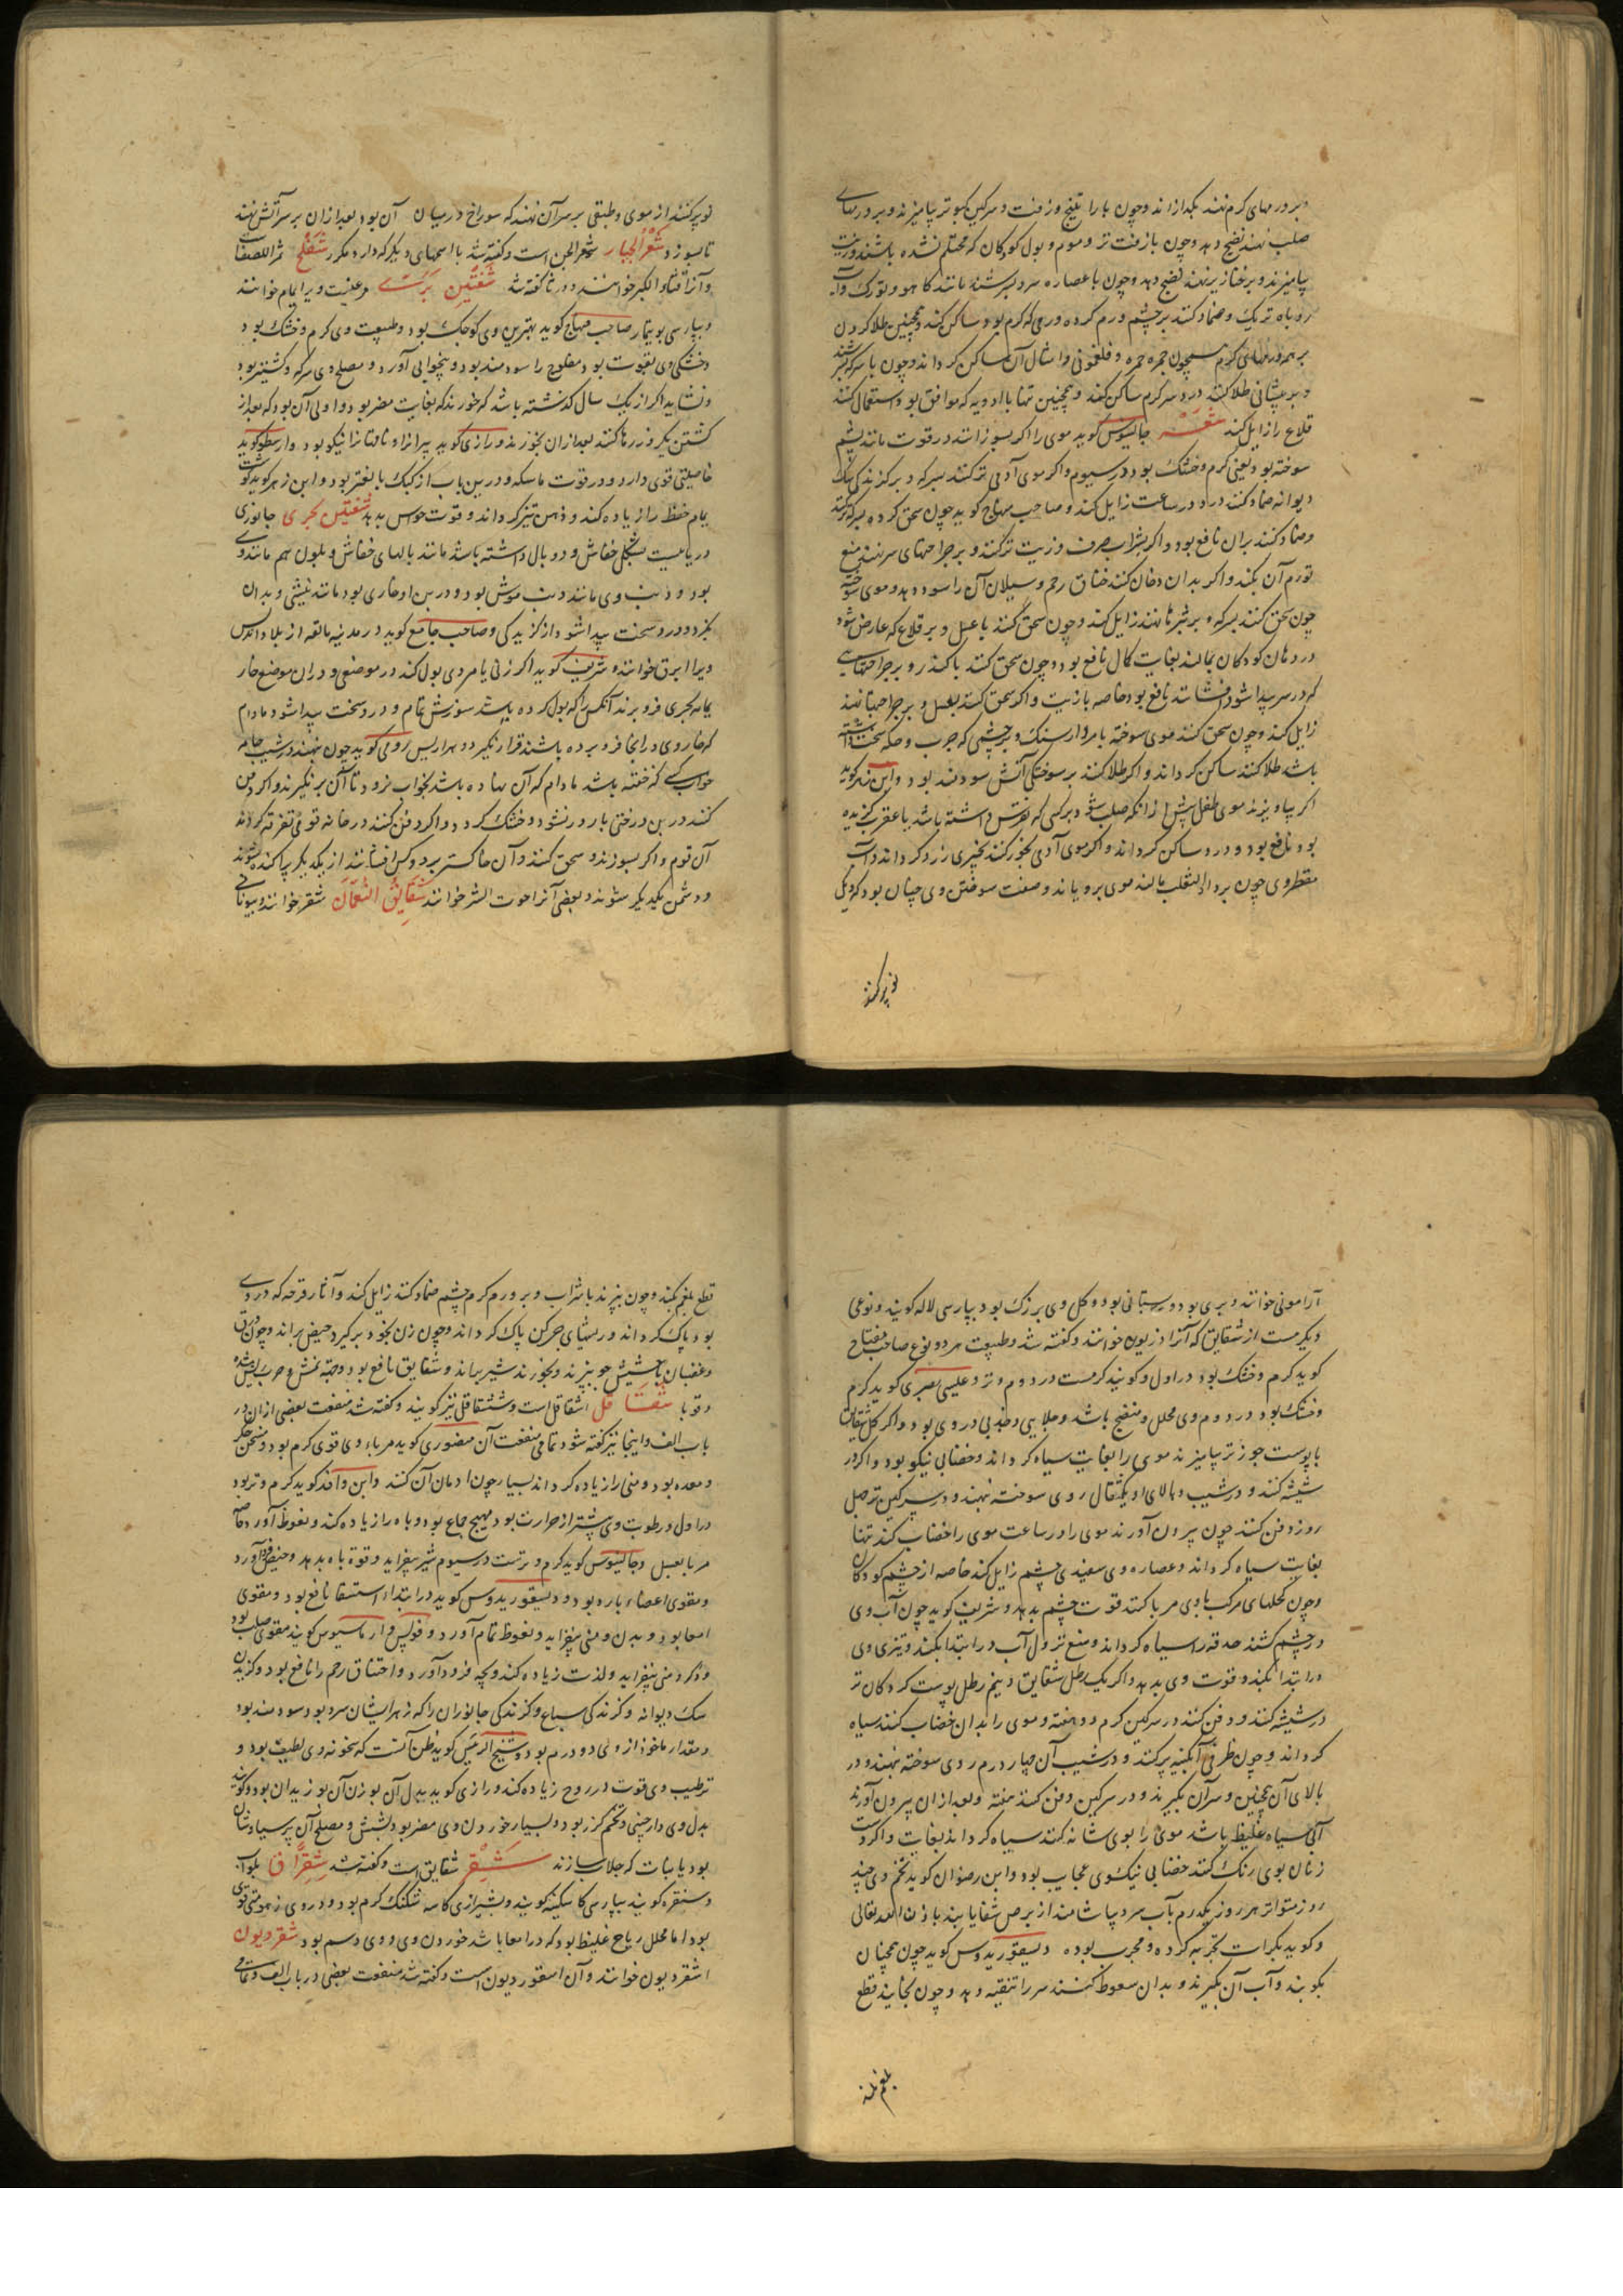 و بر ورمهای گرم نهند بگدازاند و چون با راتینج و زفت و سرکین کبوتر بیامیزند و بر ورمهای
صلب نهند نضج دهد و چون با زفت تر و موم و بول کودکان که محتلم نشده باشند و زیت
بیامیزند و بر خنازیر نهند نضج دهد و چون با عصاره سرد بسرشند مانند کاهو و تورک و آب
روباه تریک و ضماد کنند بر چشم ورم کرده ورمی که گرم بود ساکن کند و همچنین طلا کردن
بر همه ورمهای گرم همچون جمره و حمره و فلغمونی و امثال آن ساکن گرداند و چون با سرکه بسرشند
و بر پیشانی طلا کنند درد سر گرم ساکن کند و همچنین تنها با ادویه که موافق بود استعمال کنند
قلاع را زایل کند شعر جالینوس گوید موی را اگر بسوزانند در قوت مانند پشم
سوخته بود یعنی گرم و خشک بود در سیوم و اگر موی آدمی تر کنند بسرکه و بر گزندگی سگ
دیوانه ضماد کنند درد در ساعت زایل کند و صاحب منهاج گوید چون سحق کرده بسرکه تر کنند
و ضماد کنند بران نافع بود و اگر بشراب صرف و زیت تر کنند و بر جراحتهای سر نهند منع
تورم آن بکند و اگر بدان دخان کنند خناق رحم و سیلان آن را سود دهد و موی سوخته
چون سحق کنند بسرکه و بر بثرها نهند زایل کند و چون سحق کنند با عسل و بر قلاع که عارض شود
در دهان کودکان بمالند بغایت کمال نافع بود و چون سحق کنند با کندر و بر جراحتهایی
که در سر پیدا شود افشانند نافع بود خاصه با زیت و اگر سحق کنند بعسل و بر جراحتها نهند
زایل کند و چون سحق کنند موی سوخته با مردار سنگ و بر چشمی که جرب و حکه سخت داشته
باشد طلا کنند ساکن گرداند و اگر طلا کنند بر سوختگی آتش سودمند بود و ابن زهر گوید
اگر بیاویزند موی طفل پیش از آنکه صلب شود بر کسی که نقرس داشته باشد یا عقرب گزیده
بود نافع بود و درد ساکن گرداند و اگر موی آدمی بخور کنند بچیزی زرد گرداند و آب
مقطر وی چون بر داء الثعلب مالند موی برویاند و صفت سوختن وی چنان بود که دیگ
نو پر کنند
نو پر کنند از موی و طبقی بر سر آن نهند که سوراخ در میان آن بود بعد از ان بر سر آتش نهند
تا بسوزد شعر الجبار شعر الجن است و گفته شد با اسمهای دیگر که دارد مکرر شفلح ثمر اللصفات
و آنرا قثاء الکبر خوانند و در ثا گفته شد شفنین بری مرغیست و یرا یام خوانند
و بپارسی بوتیمار صاحب منهاج گوید بهترین وی کوچک بود و طبیعت وی گرم و خشک بود
و خشکی وی بقوت بود مفلوج را سودمند بود و بیخوابی آورد و مصلح وی سرکه و کشنیز بود
و نشاید اگر از یک سال گذشته باشد که خورند که بغایت مضر بود و اولی آن بود که بعد از
کشتن یکروز رها کنند بعد از ان بخورند و رازی گوید ارسطو گوید
خاصیتی قوی دارد و در قوت ماسکه و درین باب از کبک بالغتر بود و ابن زهر گوید گوشت
یام حفظ را زیاده کند و ذهن تیز گرداند و قوت حواس بدهد شفنین بحری جانوری
دریاییست بشکل خفاش و دو بال داشته باشد مانند بالهای خفاش و بلون هم مانند وی
بود و ذنب وی مانند ذنب موش بود و در بن او خاری بود مانند نیشی و بدان
بگزد و درد سخت پیدا شود از گزیدگی و صاحب جامع گوید در مدینه مالقه از بلاد اندلس
ویرا ابرق خوانند و شریف گوید اگر زنی یا مردی بول کند در موضعی و در ان موضع خار
یمام بحری فرو برند آنکس را که بول کرده باشد سوزش تمام و درد سخت پیدا شود مادام
که خار وی در انجا فرو برده باشند قرار نگیرد و هراریس رومی گوید چون نهند در شیب جامه
خواب کسی که خفته باشد مادام که آن نهاده باشد بخواب نرود تا آن بر نگیرند و اگر دفن
کنند در بن درختی بارور نشود و خشک گردد و اگر دفن کنند در خانه قومی تفرقه گردند
آن قوم و اگر بسوزند و سحق کنند و آن خاکستر بر دو کس افشانند از یکدیگر پراکنده شوند
و دشمن یکدیگر شوند و بعضی آنرا حوت الشر خوانند شقایق النعمان شقر خوانند و بیونانی
آرامونی خوانند و بری بود و بستانی بود و گل وی بزرگ بود بپارسی لاله گویند و نوعی
دیگر هست از شقایق که آنرا اذریون خوانند و گفته شد و طبیعت هر دو نوع صاحب مفتاح
گوید گرم و خشک بود در اول و گویند گرمست در دوم و تر و عیسی بصری گوید گرم
و خشک بود در دوم وی محلل و منضج باشد و جلایی و جذبی در وی بود و اگر گل شقایق
با پوست جوز تر بیامیزند موی را بغایت سیاه گرداند و خضابی نیکو بود و اگر در
شیشه کنند و در شیب و بالای او یکمثقال روی سوخته نهند و در سرکین تر چهل
روز دفن کنند چون بیرون آورند موی را در ساعت موی را خضاب کند تنها
بغایت سیاه گرداند و عصاره وی سفیدی چشم زایل کند خاصه از چشم کودکان
و چون کحلهای مرکب با وی مربا کنند قوت چشم بدهد و شریف گوید چون آب وی
در چشم کشند حدقه را سیاه گرداند و منع نزول آب در ابتدا بکند و تیزی وی
در ابتدا بکند و قوت وی بدهد و اگر یک رطل شقایق و نیم رطل پوست گردکان تر
در شیشه کنند و دفن کنند در سرکین گرم دو هفته و موی را بدان خضاب کنند سیاه
گرداند و چون ظرفی آبگینه پر کنند و در شیب آن چهار درم روی سوخته نهند و در
بالای آن همچنین و سر آن بگیرند و در سرکین دفن کنند هفته و بعد از ان بیرون آورند
آبی سیاه غلیظ باشد موی را بوی شانه کنند سیاه گرداند بغایت و اگر دست
زنان بوی رنگ کنند خضابی نیکوی عجایب بود و ابن رضوان گوید تخم وی چند
روز متواتر هر روز یکدرم بآب سرد بیاشامند از برص شفا یابند باذن الله تعالی
و گوید بکرات تجربه کرده و مجرب بوده دیسقوریدوس گوید چون همچنان
بکوبند و آب آن بگیرند و بدان سعوط کنند سر را تنقیه دهد و چون بخایند قطع
بلغم بکند
قطع بلغم بکند و چون بپزند با شراب و بر ورم گرم چشم ضماد کنند زایل کند و آثار قرحه که در وی
بود پاک گرداند و ریشهای چرکن پاک گرداند و چون زن بخود برگیرد حیض براند و چون ورق
و قضبان با حشیش جو بپزند و بخورند شیر براند و شقایق نافع بود جهة نمش و جرب ریش شده
و قوبا شقاقل اشقاقل است و ششقاقل نیز گویند و گفته شد منفعت بعضی از ان در
باب الف و اینجا نیز گفته شود تمامی منفعت آن منصوری گوید مرباء وی قوی گرم بود و مسخن جگر
و معده بود و منی را زیاده گرداند بسیار چون ادمان آن کنند و ابن وافد گوید گرم و تر بود
در اول و رطوبت وی بیشتر از حرارت بود مهیج جماع بود و باه را زیاده کند و نعوظ آورد خاصه
مربا بعسل و جالینوس گوید گرم و ترست در سیوم شیر بیفزاید و قوة باه بدهد و حیض فرود آورد
و مقوی اعضاء بارده بود و دیسقوریدوس گوید در ابتداء استسقا نافع بود و مقوی
امعا بود و بدن و منی بیفزاید و نعوظ تمام آورد و فولس و ارماسیوس گویند مقوی صلب بود
و ذکر و منی بیفزاید و لذت زیاده کند و بچه فرود آورد و اختناق رحم را نافع بود و گزیدن
سگ دیوانه و گزندگی سباع و گزندگی جانوران را که زهر ایشان سرد بود سودمند بود
و مقدار ماخوذ از وی دو درم بود و شیخ الرئیس گوید ظن آنست که سخونه وی لطیف بود و
ترطیب وی قوت در روح زیاده کند و رازی گوید بدل آن بوزن آن بوزیدان بود و گویند
بدل وی دارچینی و تخم گزر بود و بسیار خوردن وی مضر بود بشش و مصلح آن پرسیاوشان
بود یا نبات که جلاب سازند شقر شقایق است و گفته شد شقراق
و سنقره گویند بپارسی کاسکینه گویند و بشیرازی کاسه شکنک گرم بود و در وی زهومتی قوی
بود اما محلل ریاح غلیظ بود که در امعا باشد خوردن وی و وی دسم بود شقردیون
اشقردیون خوانند و آن اسقوردیون است و گفته شد منفعت بعضی در باب الف و تمامی